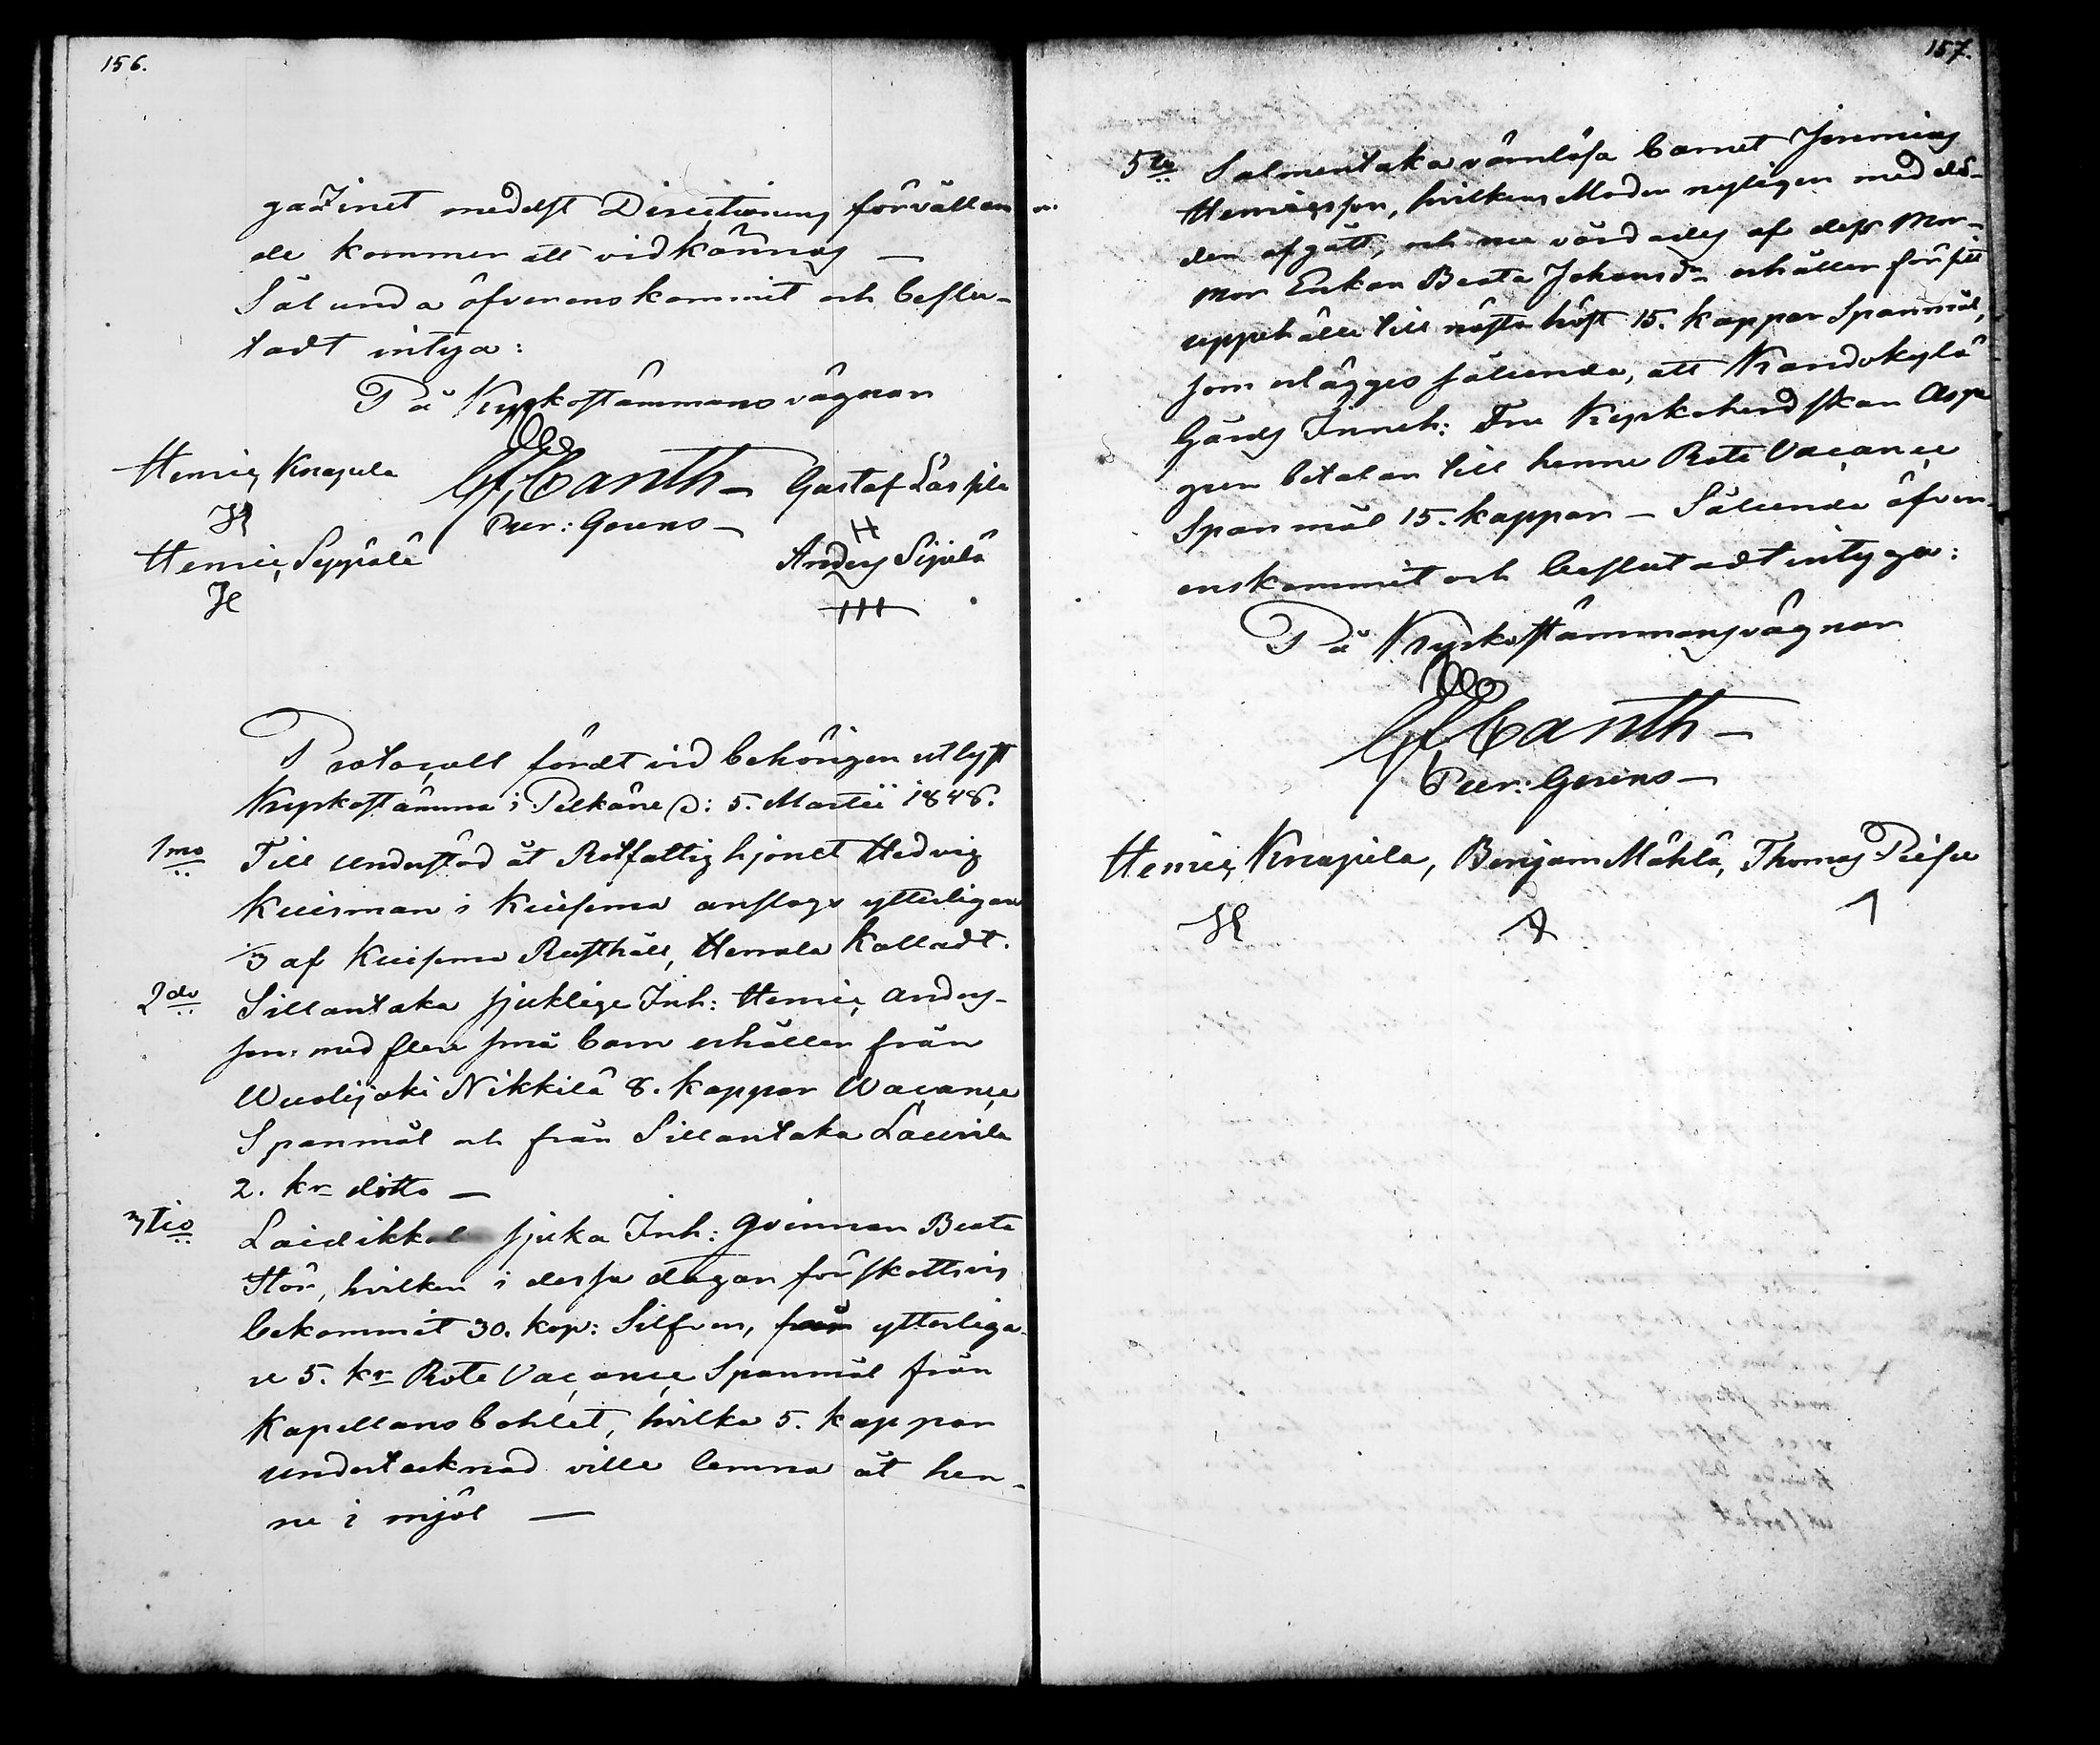 156.
gazinet medelst Directionens förvållan-
de kommer att vidkännas —
Sålunda öfverenskommit och beslu-
tadt intyga:
På Kyrkostämmans vägnar
Henric Knapila GF Canth — Gustaf Laspila
Past: Gerens —
Henric Seppälä Anders Sipilä
Protocoll fördt vid behörigen utlyst
Kyrkostämma i Pelkäne d: 5. Martii 1848.
1mo Till understöd åt Rotfattig hjonet Hedvig
Kuisman i Kuisema anslogs ytterligare
1/3 af Kuisema Rusthåll, Herrala kalladt.
2do Sillantaka sjuklige Inh: Henric Anders-
son med flere små barn erhåller från
Wuolijoki Nikkilä 8. kappar Wacance
Spanmål och från Sillantaka Laurila
2. kr ditto —
3tio Laidikkal sjuka Inh: qvinnan Beata
Stör, hvilken i dessa dagar förskottsvis
bekommit 30. kop: Silfver, får ytterliga-
re 5. kr Rote Vacance Spanmål från
Kapellansbohlet, hvilka 5. kappar
undertecknad ville lemna åt hen-
ne i mjöl —
157.
5to Salmentaka värnlösa barnet Jeremias
Henricsson, hvilkens Moder nyligen med dö-
den afgått, och nu vårdades af dess Mor-
mor Enkan Beata Johansdr erhåller för sitt
uppehälle till nästa höst 15. kappar Spanmål,
som erlägges sålunda, att Kandokylä
Gårds Inneh: Fru Kyrkoherdskan Aspe
gren betalar till henne Rote Vacance
Spanmål 15. kappar — Sålunda öfver-
enskommit och beslutadt intyga:
På Kyrkostämmans vägnar
GF Canth —
Past: Gerens —
Henric Knapila, Benjam Mähkä, Thomas Peisu